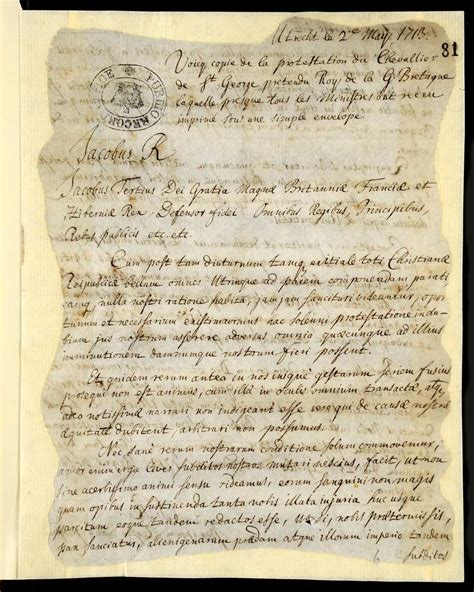 Utrecht le 2e. May 1713.
81
Voicy copie de la protestation du Chevallier
de St George pretendu Roy de la G. Bretagne
laquelle presque tous les Ministres ont receu
imprimé sous une simple envelope
Jacobus R
Jacobus Tertius Dei Gratia Magnæ Britanniæ Franciæ et
Hiberniæ Rex, Defensor fidei Omnibus Regibus, Principibus,
Rebus publicis etc. etc.
Cum post tam diuturnum tamq. exitiale toti Christianæ
Reipublicæ bellum omnes Utrinque ad pacem componendam parati
eamq. nulla nostri ratione habita, jam jam sancituri videantur, opor-
tunum et necessarium existimavimus hac solenni protestatione indu-
bium jus nostrum asserere adversus omnia quæcunque ad illius
imminutionem damnumque nostrum fieri possent.
Et quidem rerum antea in nos inique gestarum seriem fusius
prosequi non est animus, cum illæ in oculis omnium transactæ, atq.
adeo notissimæ narrari non indigeant esse de causæ nostræ
æquitate dubitent, arbitrari non possumus.
Nec sane rerum nostrarum conditione solum commovemur,
amor enim erga cives subditos nostros mutari nescius, facit, ut non
sine acerbissimo animi sensu videamus, eorum sanguini non magis
quam opibus in sustinenda tanta nobis illata injuria huc usque
parcitum eoque tandem redactos esse, ut si, nobis prætermissis,
pax sanciatur, alienigenarum prædam atque illorum imperio tandem
subditos